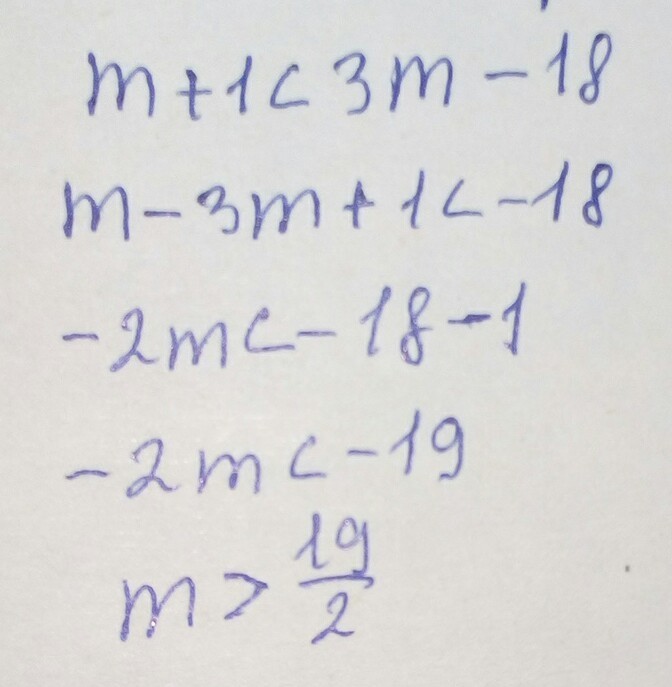 m + 1 < 3m - 18
m - 3m + 1 < -18
-2m < -18 - 1
-2m < -19
m > 19/2